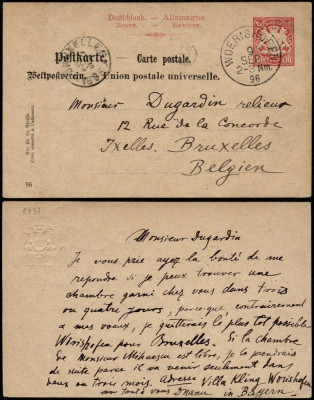 Deutschland. — Allemagne.
Bayern. Bavière.
Postkarte. — Carte postale.
Weltpostverein. Union postale universelle.
WOERISHOFEN
9
SEP.
2-3 NM.
96
IXELLES
Monsieur Dugardin relieur
12 Rue de la Concorde
Ixelles. Bruxelles
Belgien
96
Monsieur Dugardin
Je vous prie ayez la bonté de me
repondre si je peux trouver une
chambre garni chez vous dans trois
ou quatre jours, parceque contrairement
a mes voeux, je quitterais le plus tot possible
Wörishofen pour Bruxelles. Si la chambre
de Monsieur est libre, je la prendrais
de suite parce il va venir seulement dans
deux ou trois mois. Adresse Villa Kling Worishofen
au tout a vous in Bayern